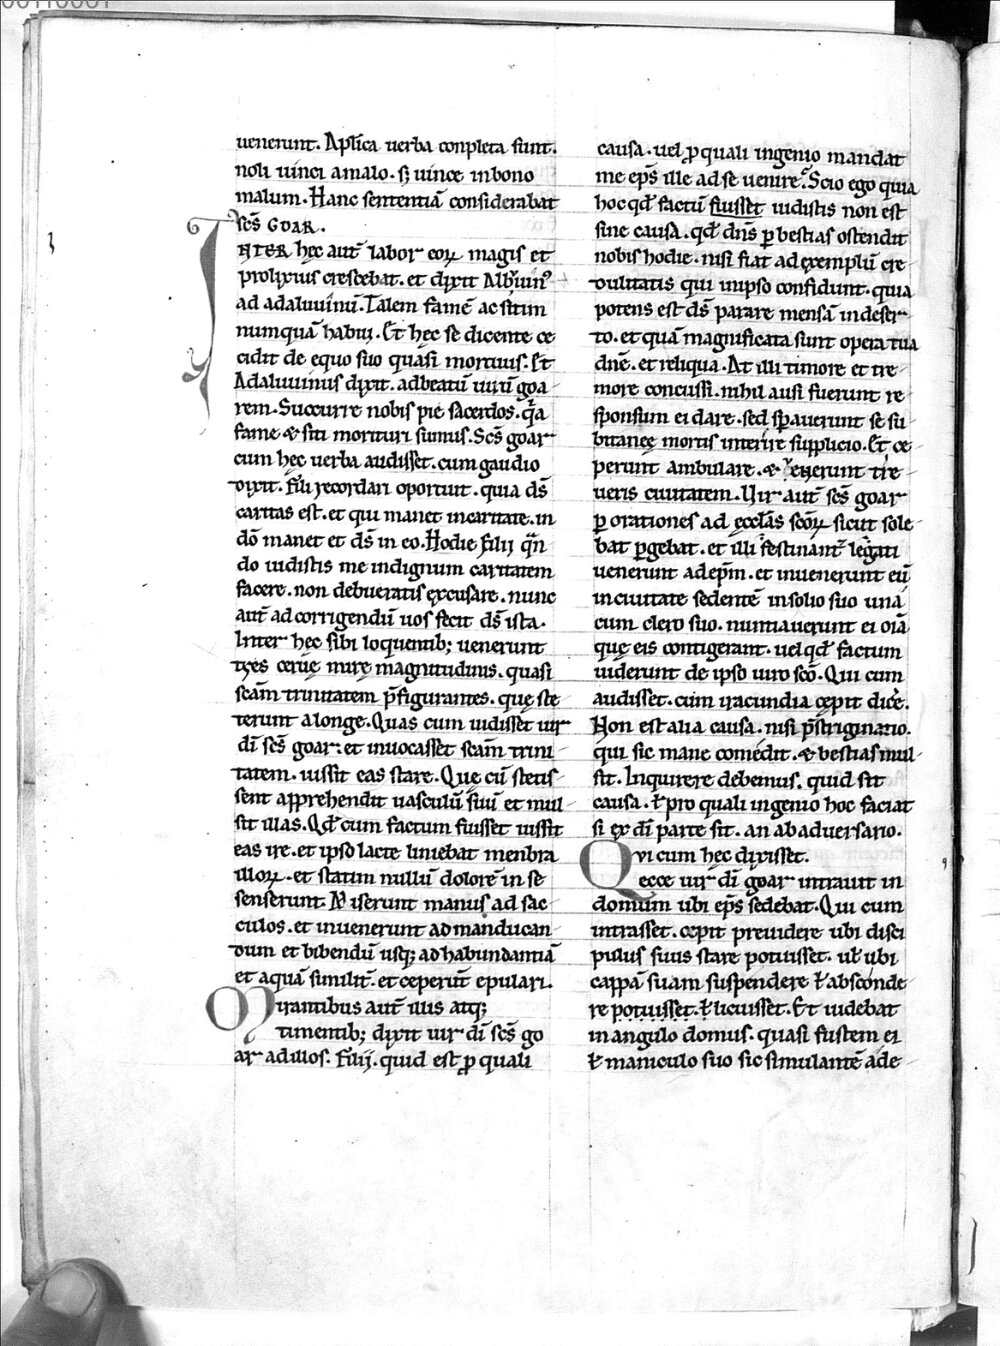 uenerunt. Aplica uerba conpleta sunt.
noli uinci a malo. sʒ uince in bono
malum. Hanc sententiā considerabat
scs̄ GOAR.
INTER hec aut̄ labor eoꝝ magis et
prolixius crescebat. et dixit Albiuinꝰ
ad adaluuinū. Talem famē ac sitim
numquā habui. Et hec se dicente ce
cidit de equo suo quasi mortuus. Et
Adaluuinus dixit. ad beatū uirū goa
rem. Succurre nobis pie sacerdos. qͣa
fame & siti morituri sumus. Scs̄ goar
cum hęc uerba audisset. cum gaudio
dixit. Fili recordari oportuit. quia ds̄
caritas est. et qui manet in caritate. in
dō manet et ds̄ in eo. Hodie filii qn̄
do uidistis me indignum caritatem
facere. non debueratis excusare. nunc
aut̄ ad corrigendū uos fecit ds̄ ista.
Inter hęc sibi loquentib; uenerunt
tres ceruę mirę magnitudinis. quasi
scām trinitatem p̄figurantes. quę ste
terunt a longe. Quas cum uidisset uir
dī scs̄ goar. et inuocasset scām trini
tatem. iussit eas stare. Quę cū stetis
sent apprehendit uasculū suū et mul
sit illas. Qd̄ cum factum fuisset iussit
eas ire. et ipso lacte liniebat menbra
illoꝝ. et statim nullū dolorē in se
senserunt. Miserunt manus ad sac
culos. et inuenerunt ad manducan
dum et bibendū usq; ad habundantiā
et aquā similit̄. et ceperūt epulari.
Mirantibus aut̄ illis atq;
timentib; dixit uir dī scs̄ go
ar ad illos. Filii. quid est ꝓ quali
causa. uel ꝓ quali ingenio mandat
me ep̄s ille ad se uenire. Scio ego quia
hoc qd̄ factū fuisset uidistis non est
sine causa. qd̄ dn̄s ꝑ bestias ostendit
nobis hodie. nisi fiat ad exemplū cre
dulitatis qui in ipso confidunt. quia
potens est ds̄ parare mensā in deser
to. et quā magnificata sunt opera tua
dn̄e. et reliqua. At illi timore et tre
more concussi. nihil ausi fuerunt re
sponsum ei dare. sed spauerunt se su
bitanee mortis interire supplicio. Et ce
perunt ambulare. & uenerunt tre
ueris ciuitatem. Uir aut̄ scs̄ goar
ꝑ orationes ad ęcclas̄ scōꝝ sicut sole
bat ꝑgebat. et illi festinant̄ legati
uenerunt ad ep̄m. et inuenerunt eū
in ciuitate sedentē in solio suo unā
cum clero suo. nuntiauerunt ei om̄ia
que eis contigerant. uel qd̄ factum
uiderunt de ipso uiro scō. Qui cum
audisset. cum iracundia cępit dicere.
Non est alia causa. nisi p̄striginatio.
qui sic mane comedit. & bestias mul
sit. Inquirere debemus. quid sit
causa. ł pro quali ingenio hoc faciat
si ex dī parte sit. an ab aduersario.
Qui cum hęc dixisset.
ecce uir dī goar intrauit in
domum ubi ep̄s sedebat. Qui cum
intrasset. cepit preuidere ubi disci
pulus suus stare potuisset. uł ubi
cappā suam suspendere ł absconde
re potuisset. ł licuisset. Et uidebat
in angulo domus. quasi fustem ei
ł maniculo suo sic simulantē ade